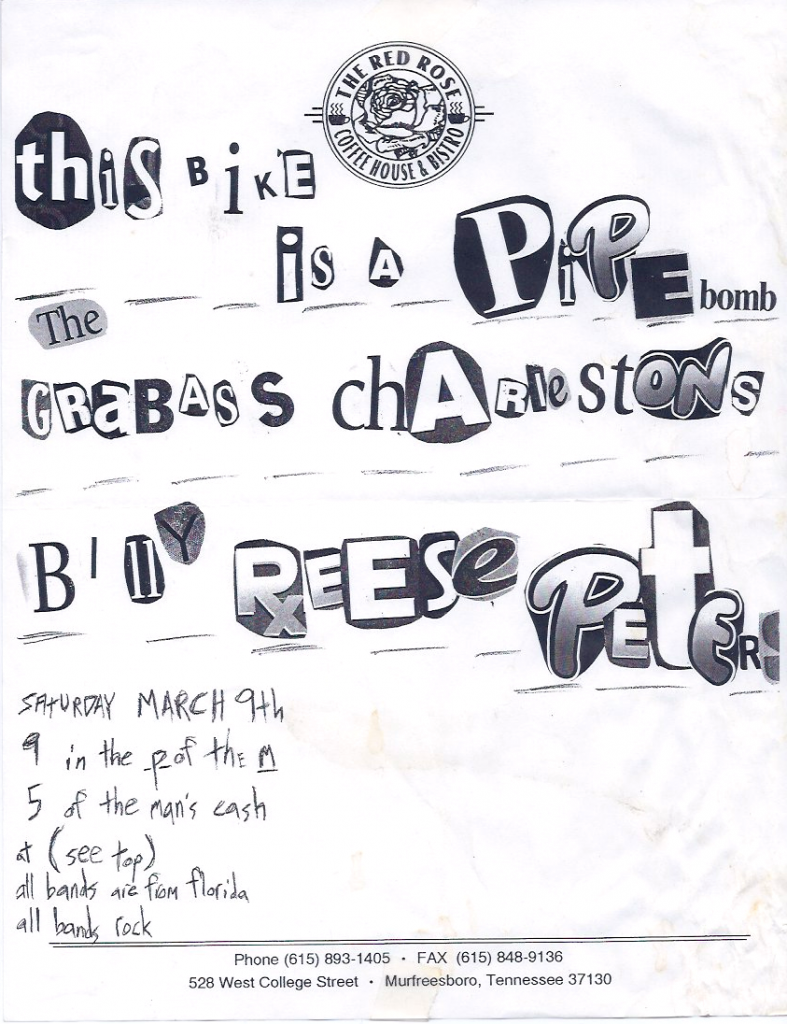 THE RED ROSE
COFFEE HOUSE & BISTRO
thiS BiKE
iS A PiPE bomb
The
GRaBASS chARleStONS
BillY REESe PEtERS
SATURDAY MARCH 9th
9 in the p of the M
5 of the man's cash
at (see top)
all bands are from florida
all bands rock
Phone (615) 893-1405 • FAX (615) 848-9136
528 West College Street • Murfreesboro, Tennessee 37130